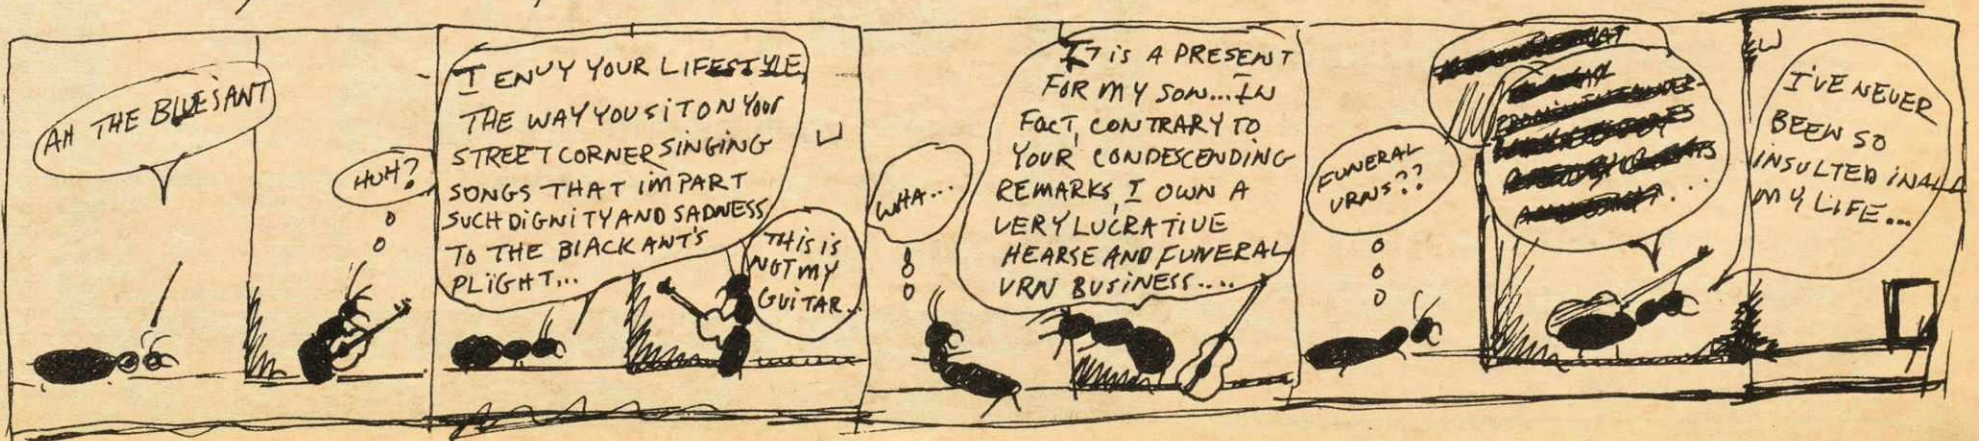 AH THE BLUES ANT
HUH?
I ENVY YOUR LIFESTYLE,
THE WAY YOU SIT ON YOUR
STREET CORNER SINGING
SONGS THAT IMPART
SUCH DIGNITY AND SADNESS
TO THE BLACK ANT'S
PLIGHT...
THIS IS
NOT MY
GUITAR..
WHA...
IT IS A PRESENT
FOR MY SON... IN
FACT, CONTRARY TO
YOUR CONDESCENDING
REMARKS, I OWN A
VERY LUCRATIVE
HEARSE AND FUNERAL
URN BUSINESS....
FUNERAL
URNS??
I'VE NEVER
BEEN SO
INSULTED IN ALL
MY LIFE...